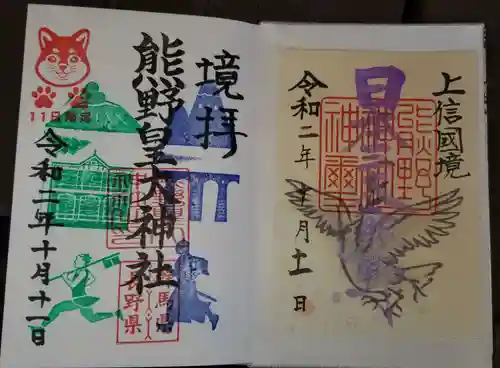 上信國境
熊野
神璽
令和二年十月十一日
境拝
熊野皇大神社
令和二年十月十一日
11日限定
馬県
野県